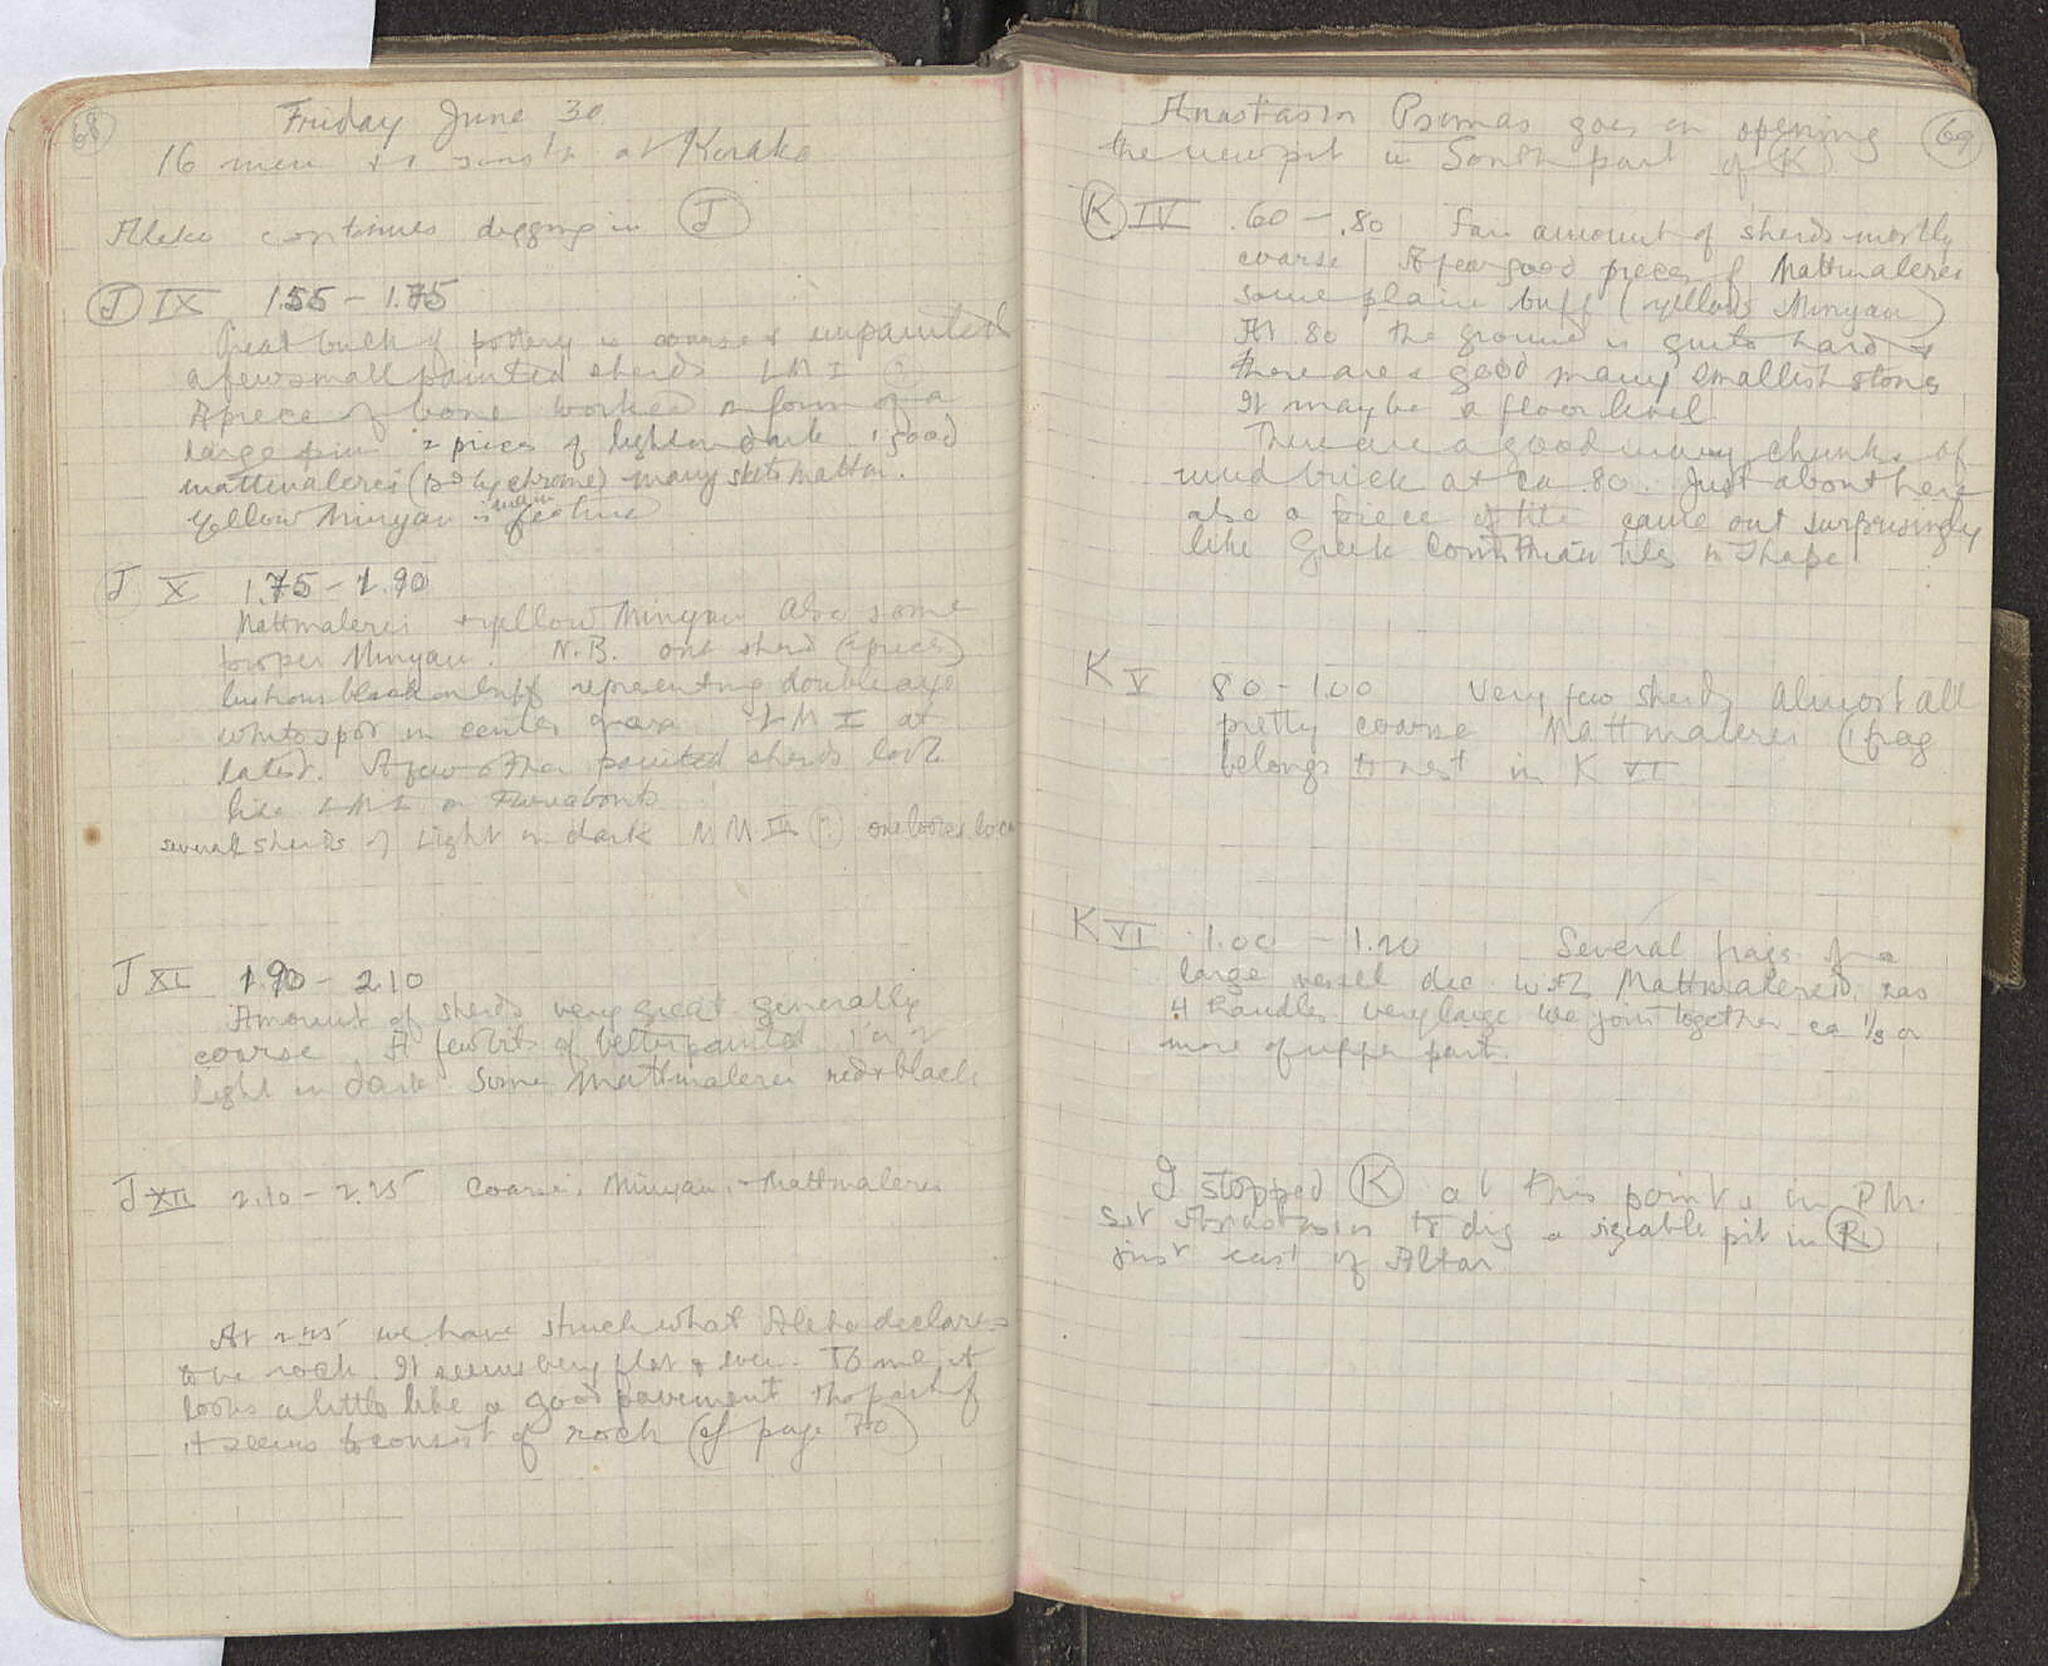 68
Friday June 30
16 men + 1 at Korako
Aleko continues digging in J
J IX 1.55 – 1.75
Great bulk of pottery is coarse & unpainted
a few small painted sherds LM I (?)
A piece of bone worked in form of a
large pin 2 pieces of light on dark 1 good
mattmalerei (polychrome) many
Yellow Minyan is main feature
J X 1.75 – 1.90
Mattmalerei + yellow Minyan also some
proper Minyan. N.B. one sherd (2 pieces)
lustrous black on buff representing double axe
white spot in center of axe LM I at
latest. A few other painted sherds look
like LM I or thereabouts
several sherds of Light on dark MM III (?) one looks local
J XI 1.90 – 2.10
Amount of sherds very great generally
coarse. A few bits of better painted 1 or 2
light on dark. Some Mattmalerei red & black
J XII 2.10 – 2.25 Coarse, Minyan, Mattmalerei
At 2.25 we have struck what Aleko declares
to be rock. It seems very flat & even. To me it
looks a little like a good pavement tho part of
it seems to consist of rock (cf page 70)
69
Anastasis Psomas goes on opening
the new pit in South part of K
K IV .60 – .80 Fair amount of sherds mostly
coarse A few good pieces of Mattmalerei
some plain buff (yellow Minyan)
At 80 the ground is quite hard &
there are a good many smallish stones
It may be a floor level
There are a good many chunks of
mud brick at ca .80. Just about here
also a piece of tile came out surprisingly
like Greek Corinthian tiles in shape
K V 80 – 1.00 Very few sherds almost all
pretty coarse Mattmalerei (1 frag
belongs to rest in K VI
K VI 1.00 – 1.20 Several frags of a
large vessel dec with Mattmalerei has
4 handles very large We join together ca 1/3 or
more of upper part.
I stopped K at this point & in P.M.
set Anastasis to dig a sizeable pit in R
just east of Altar